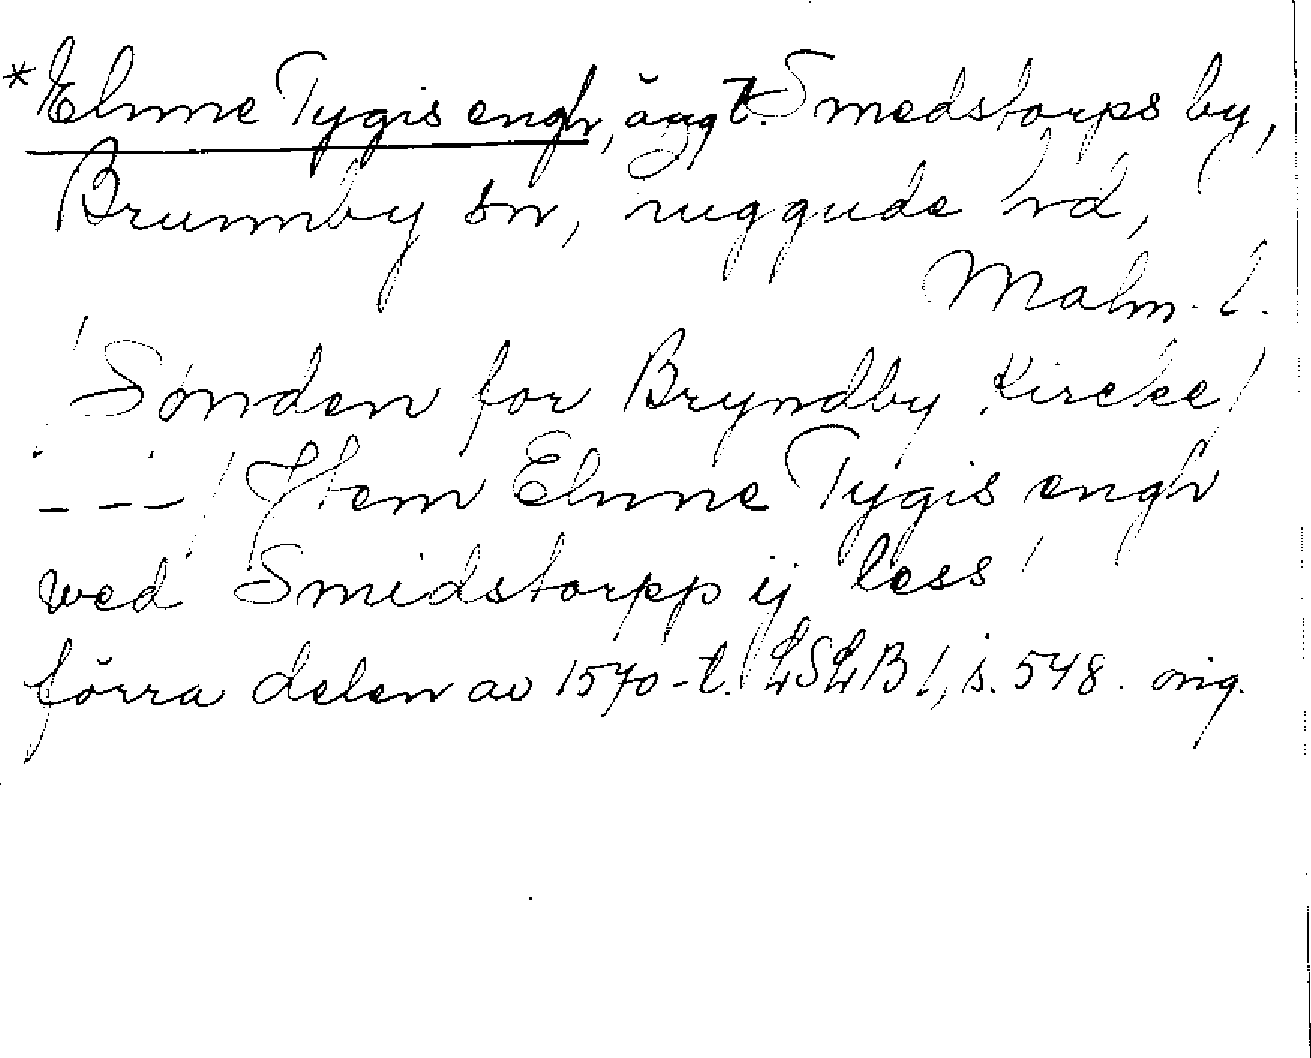 *Elmne Tygis engh, äng t. Smedstorps by,
Brunnby sn, Luggude hd,
Malm. l.
'Sønden for Bryndby Kircke/
- - -/ Jtem Elmne Tygis engh
wed Smidstorpp ij less'
förra delen av 1570-t. LSLB I, s. 548. orig.